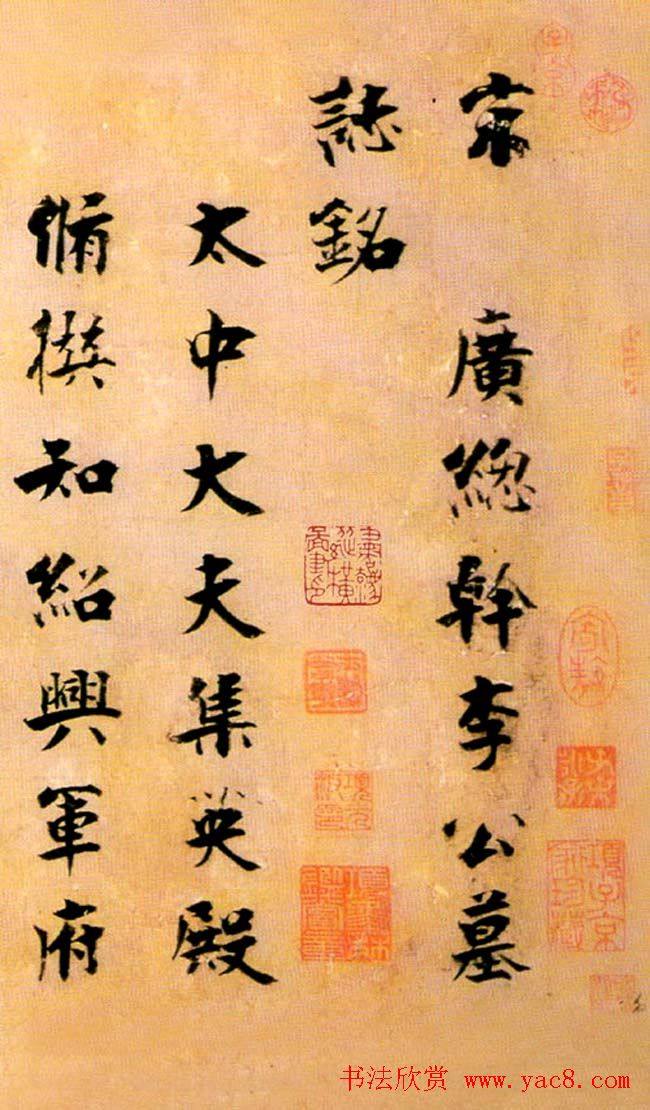 宋 廣緫幹李公墓
誌銘
太中大夫集英殿
脩撰知紹興軍府
項子京家珍藏
书法欣赏 www.yac8.com